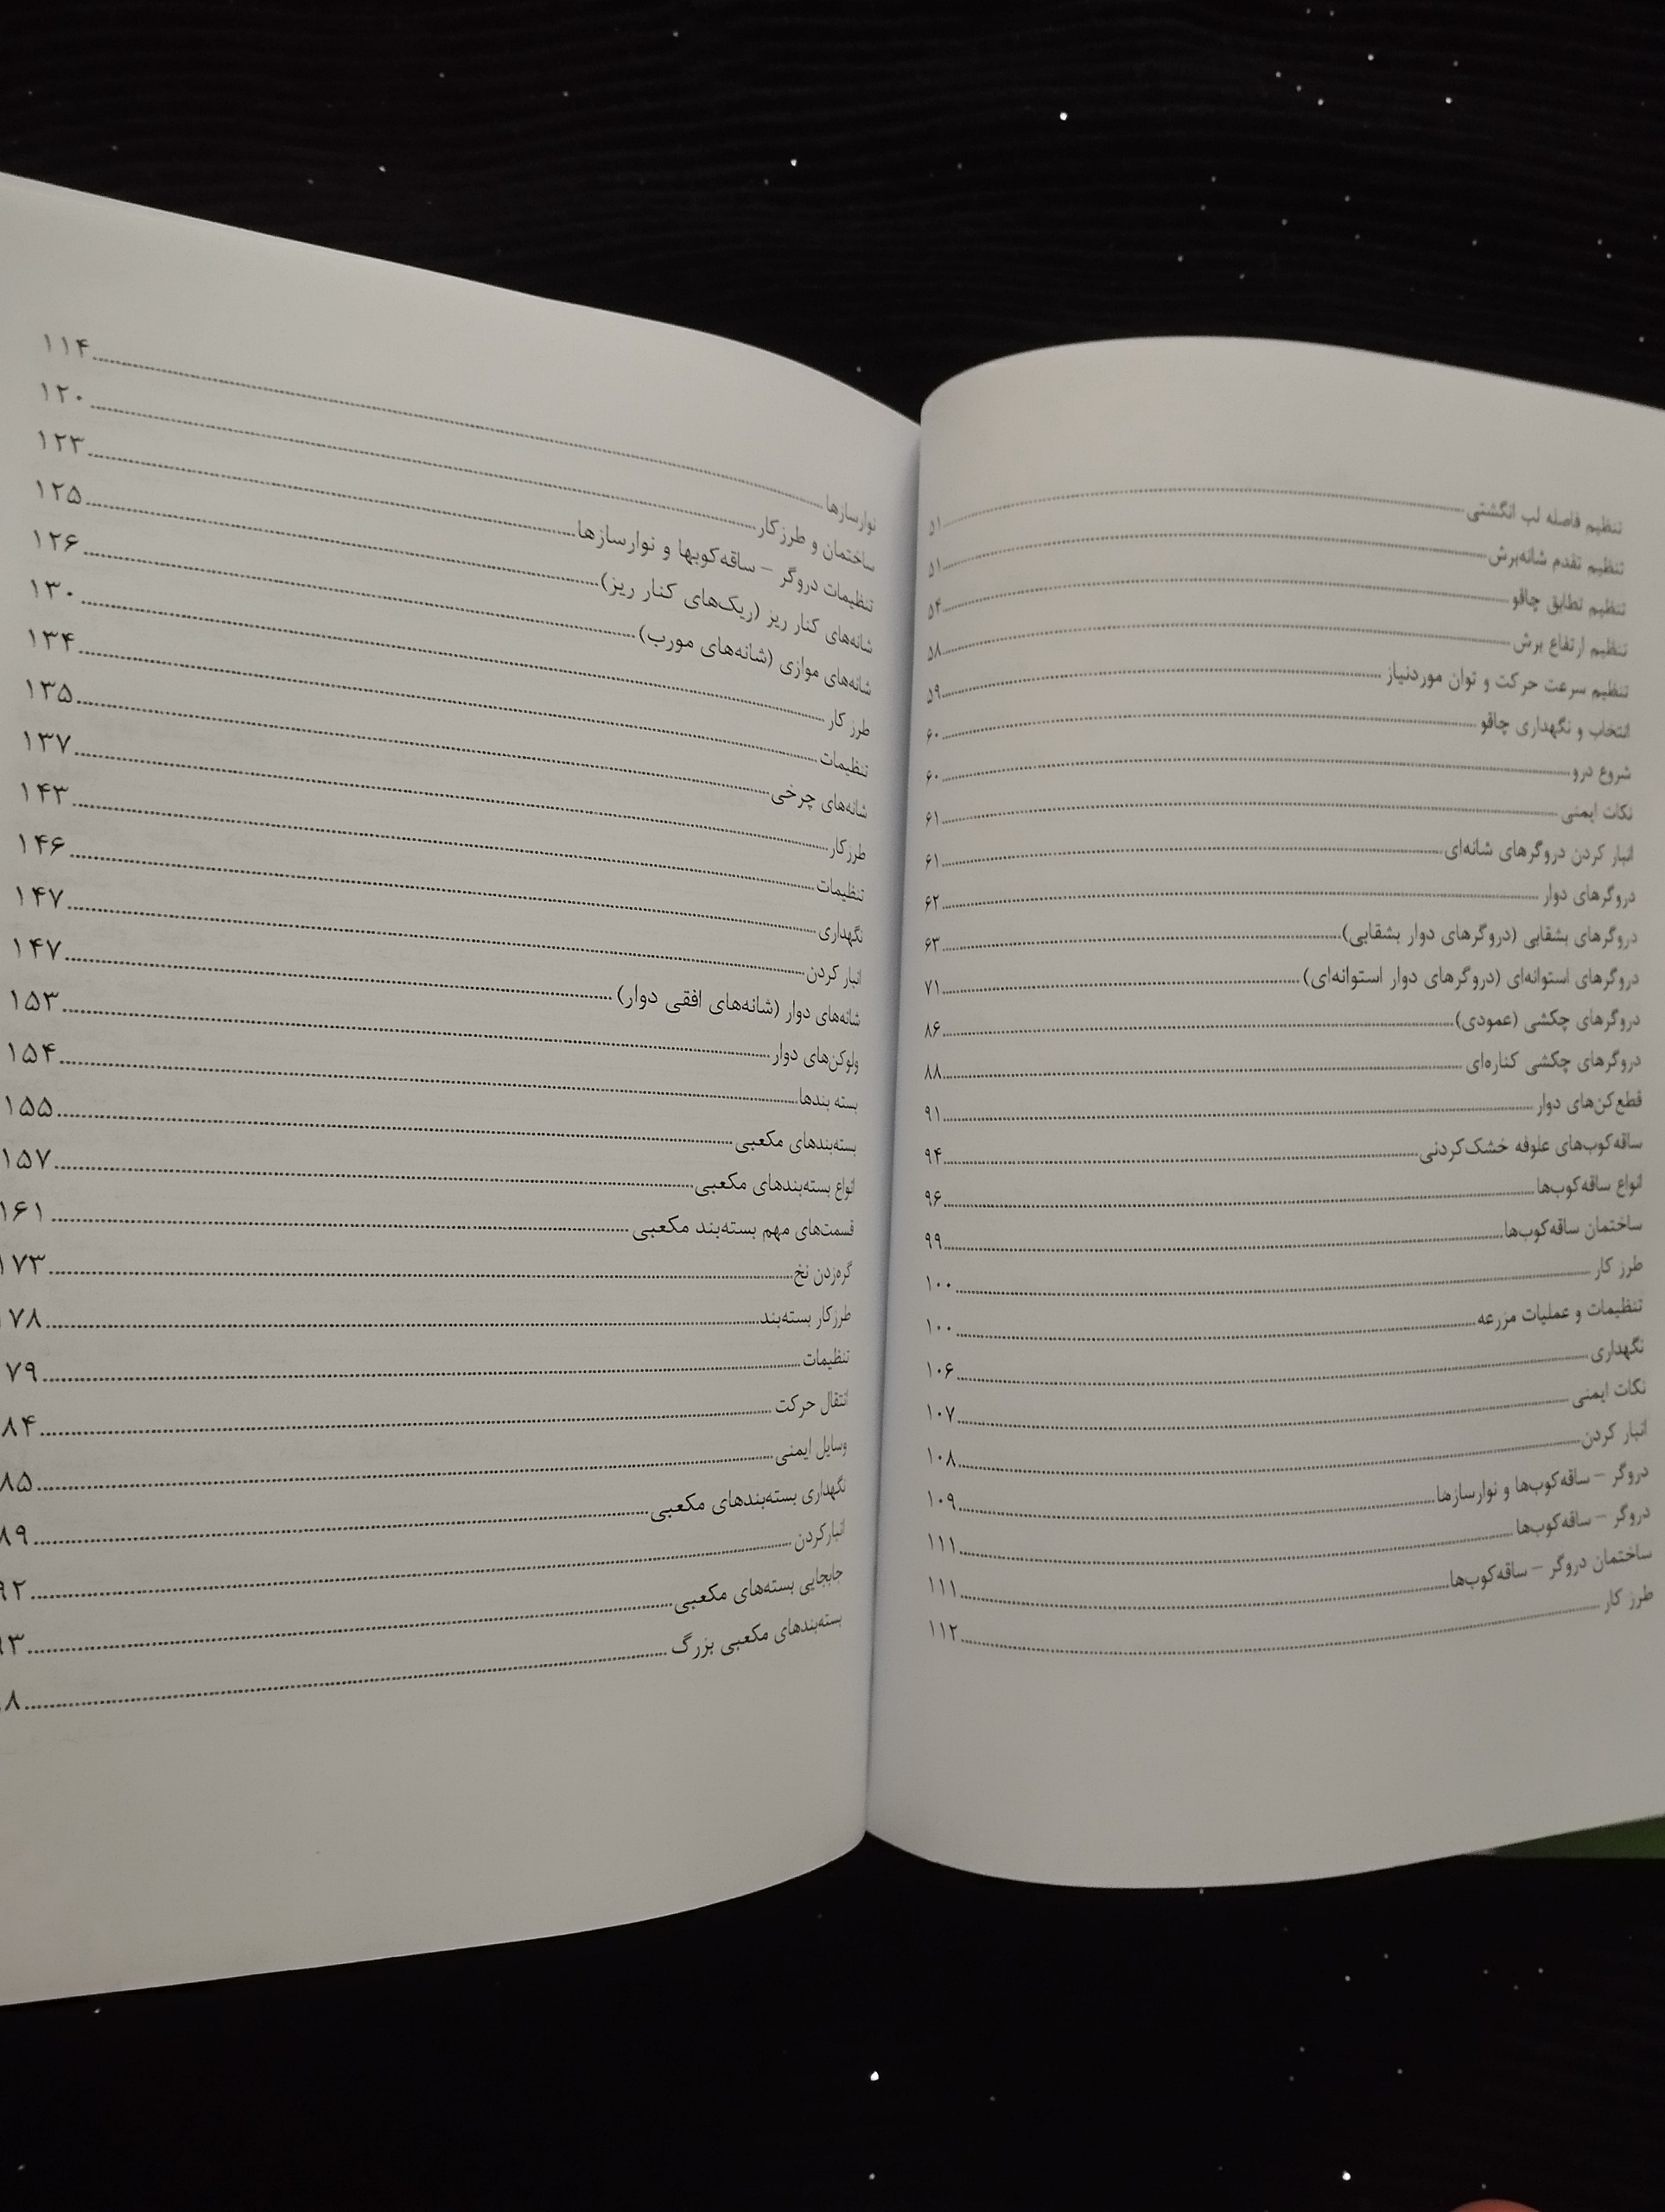 تنظیم فاصله لب انگشتی ۵۱
تنظیم تقدم شانه‌برش ۵۱
تنظیم تطابق چاقو ۵۴
تنظیم ارتفاع برش ۵۸
تنظیم سرعت حرکت و توان موردنیاز ۵۹
انتخاب و نگهداری چاقو ۶۰
شروع درو ۶۰
نکات ایمنی ۶۱
انبار کردن دروگرهای شانه‌ای ۶۱
دروگرهای دوار ۶۲
دروگرهای بشقابی (دروگرهای دوار بشقابی) ۶۳
دروگرهای استوانه‌ای (دروگرهای دوار استوانه‌ای) ۷۱
دروگرهای چکشی (عمودی) ۸۶
دروگرهای چکشی کناره‌ای ۸۸
قطع‌کن‌های دوار ۹۱
ساقه‌کوب‌های علوفه خشک‌کردنی ۹۴
انواع ساقه‌کوب‌ها ۹۶
ساختمان ساقه‌کوب‌ها ۹۹
طرز کار ۱۰۰
تنظیمات و عملیات مزرعه ۱۰۰
نگهداری ۱۰۶
نکات ایمنی ۱۰۷
انبار کردن ۱۰۸
دروگر – ساقه‌کوب‌ها و نوارسازها ۱۰۹
دروگر – ساقه‌کوب‌ها ۱۱۱
ساختمان دروگر – ساقه‌کوب‌ها ۱۱۱
طرز کار ۱۱۲
نوارسازها ۱۱۴
ساختمان و طرزکار ۱۲۰
تنظیمات دروگر – ساقه‌کوبها و نوارسازها ۱۲۳
شانه‌های کنار ریز (ریک‌های کنار ریز) ۱۲۵
شانه‌های موازی (شانه‌های مورب) ۱۲۶
طرز کار ۱۳۰
تنظیمات ۱۳۴
شانه‌های چرخی ۱۳۵
طرزکار ۱۳۷
تنظیمات ۱۴۳
نگهداری ۱۴۶
انبار کردن ۱۴۷
شانه‌های دوار (شانه‌های افقی دوار) ۱۴۷
ولوکن‌های دوار ۱۵۳
بسته بندها ۱۵۴
بسته‌بندهای مکعبی ۱۵۵
انواع بسته‌بندهای مکعبی ۱۵۷
قسمت‌های مهم بسته‌بند مکعبی ۱۶۱
گره‌زدن نخ ۱۷۳
طرزکار بسته‌بند ۷۸
تنظیمات ۷۹
انتقال حرکت ۸۴
وسایل ایمنی ۸۵
نگهداری بسته‌بندهای مکعبی ۸۹
انبارکردن ۹۲
جابجایی بسته‌های مکعبی ۹۳
بسته‌بندهای مکعبی بزرگ ۸